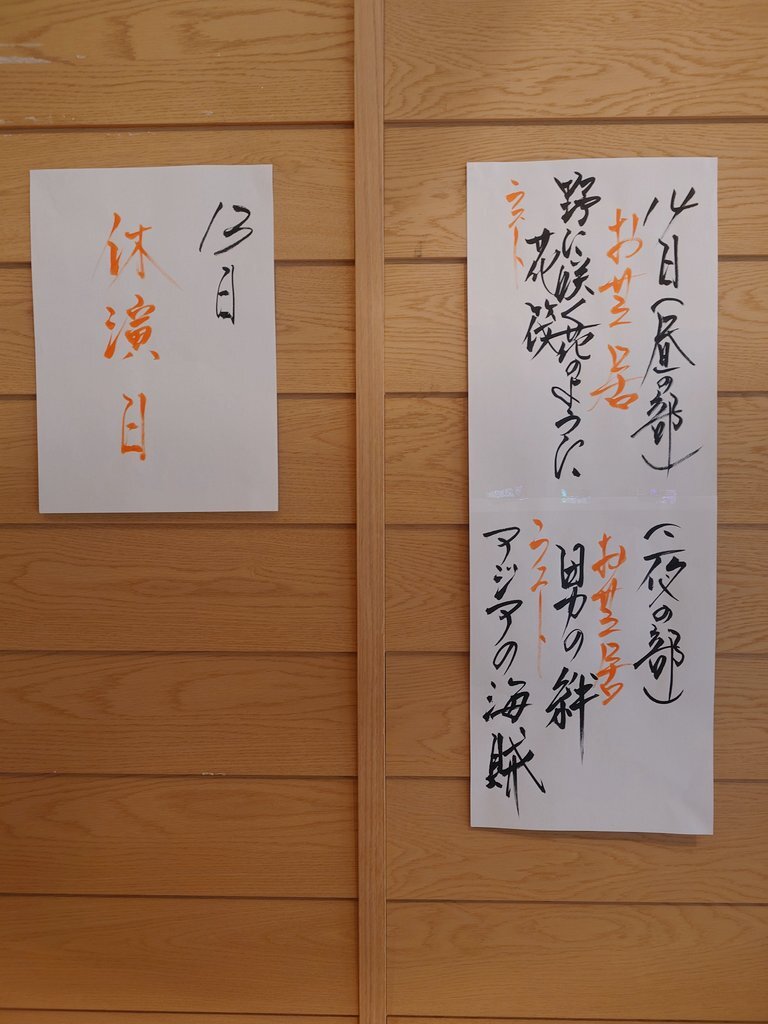 13日
休演日
14日(昼の部)
お芝居
野に咲く花のように
ラスト
花筏
(夜の部)
お芝居
男の絆
ラスト
アジアの海賊